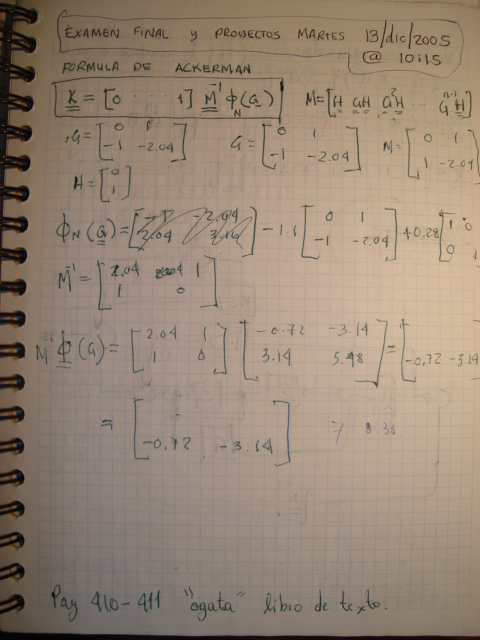 EXAMEN FINAL y PROYECTOS MARTES 13/dic/2005
@ 10:15
FORMULA DE ACKERMAN
K = [0 1] M⁻¹ Φ_N(G) M = [H GH G²H ... Gⁿ⁻¹H]
G = [0 1; -1 -2.04] G = [0 1; -1 -2.04] M = [0 1; 1 -2.04]
H = [0; 1]
Φ_N(G) = [-1 -2.04; 2.04 3.16] - 1.1 [0 1; -1 -2.04] + 0.28 [1 0; 0 1]
M⁻¹ = [2.04 1; 1 0]
M⁻¹ Φ(G) = [2.04 1; 1 0] [-0.72 -3.14; 3.14 5.48] = [-0.72 -3.14
= [-0.72 -3.14] 7 8.36
Pag 410-411 "ogata" libro de texto.